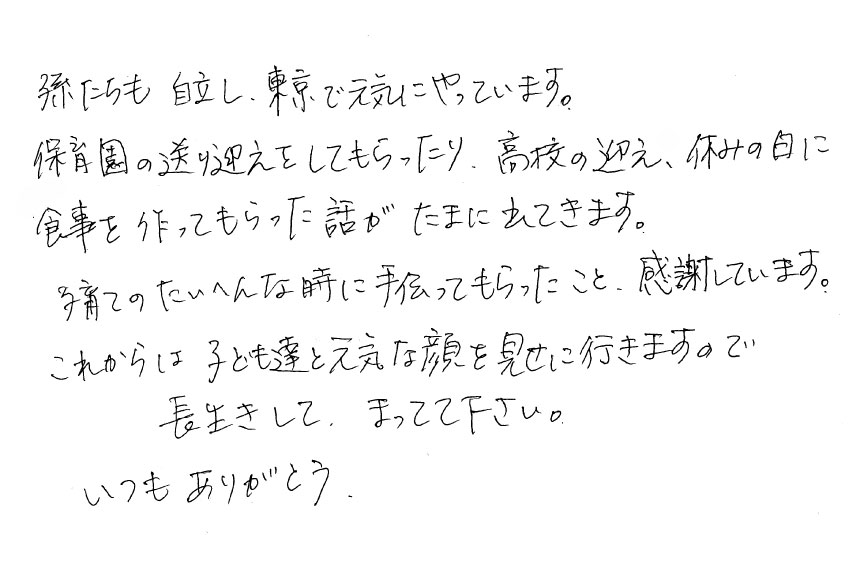 孫たちも 自立し、東京で元気にやっています。
保育園の送り迎えをしてもらったり、高校の迎え、休みの日に
食事を 作ってもらった話が たまに出てきます。
子育てのたいへんな時に手伝ってもらったこと、感謝しています。
これからは 子ども達と元気な顔を見せに行きますので
長生きして、まってて下さい。
いつも ありがとう.